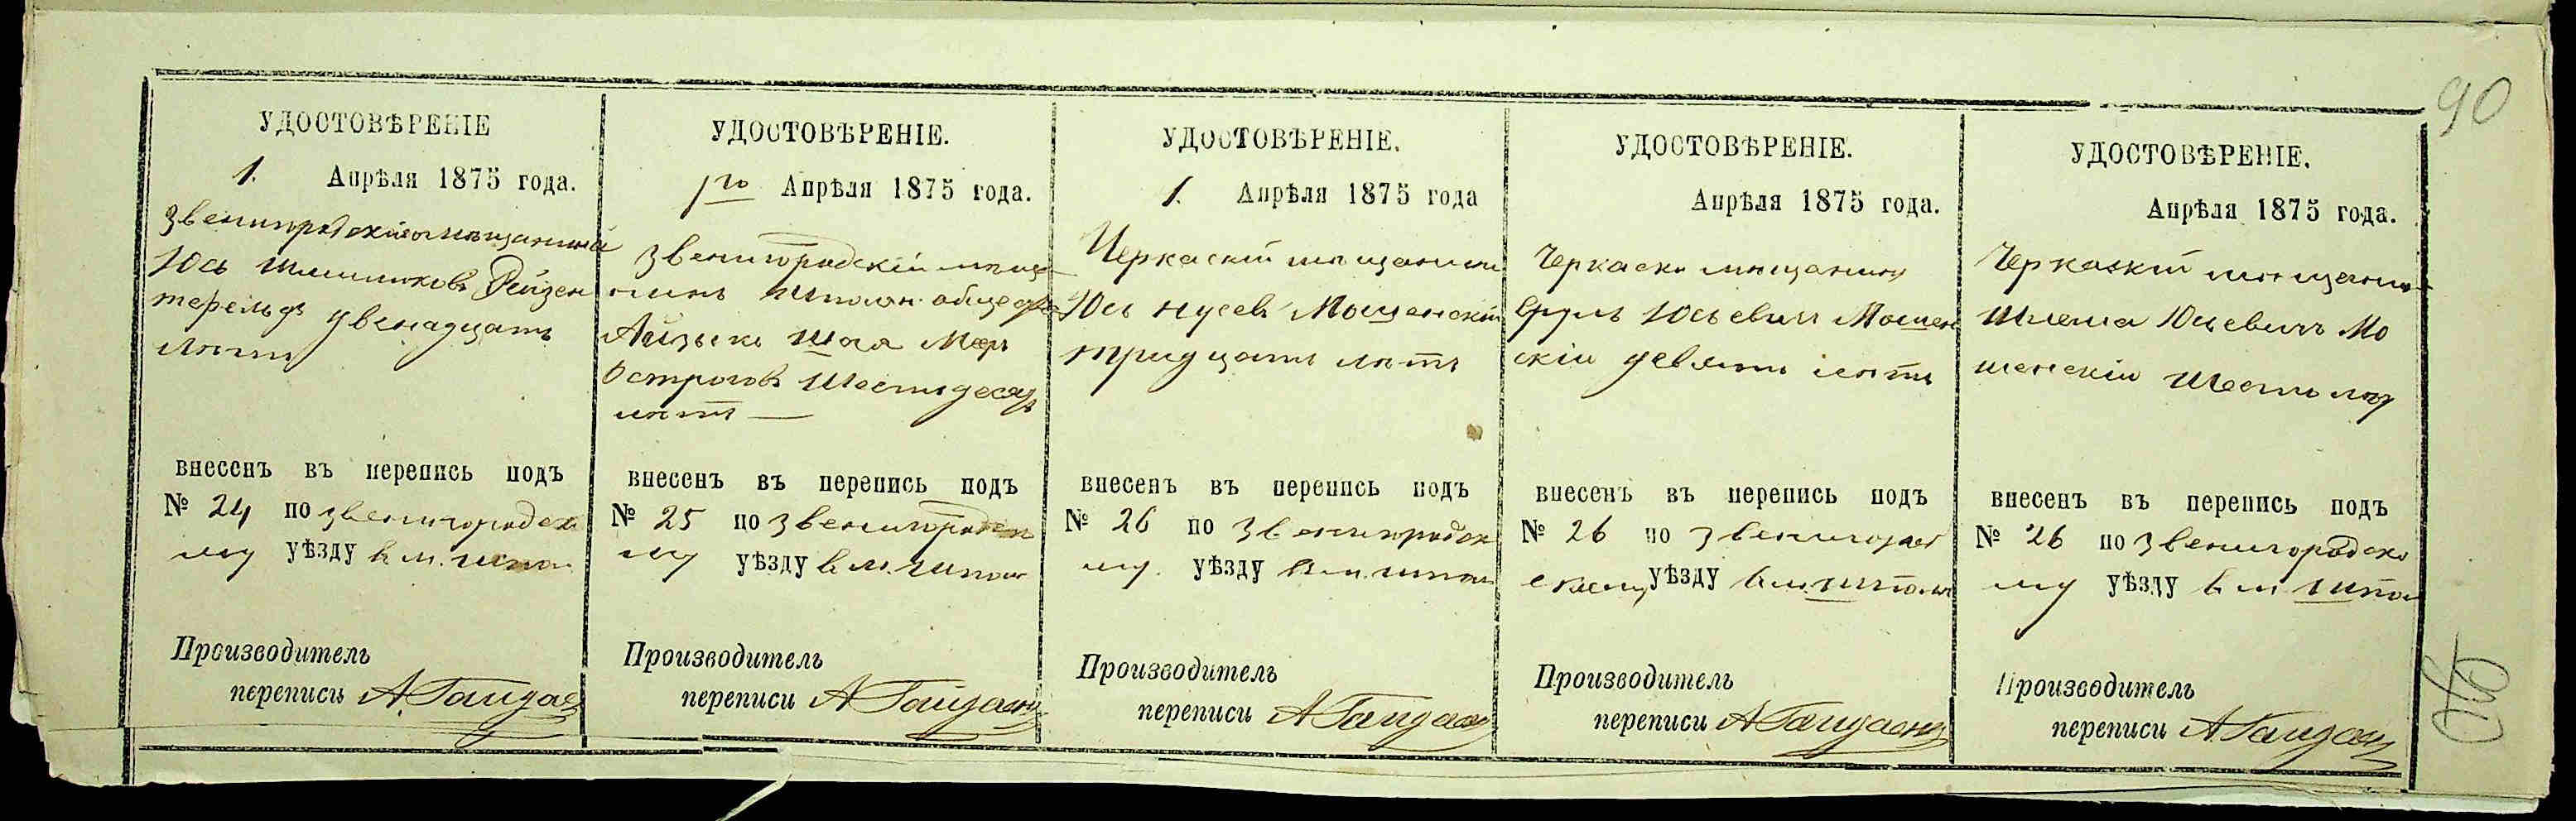 90
УДОСТОВѢРЕНІЕ
1. Апрѣля 1875 года.
Звенигородскій мѣщанинъ
Юсь Шлиомковъ Рейзен
терельдъ двенадцать
лѣтъ
внесенъ въ перепись подъ
№ 24 по звенигородско
му уѣзду в м. Шпол
Производитель
переписи А. Гайдаен
УДОСТОВѢРЕНІЕ.
1го Апрѣля 1875 года.
Звенигородскій мѣща
нинъ Шполян. общества
Айзыкъ Шоя Мер
Островъ Шестьдесят
лѣтъ
внесенъ въ перепись подъ
№ 25 по звенигородско
му уѣзду в м. Шпол
Производитель
переписи А Гайдаен
УДОСТОВѢРЕНІЕ.
1. Апрѣля 1875 года
Черкаскій мѣщанинъ
Юсь Нусевъ Мошенскій
тридцать лѣтъ
внесенъ въ перепись подъ
№ 26 по Звенигородско
му уѣзду в м. Шпол
Производитель
переписи А Гайдаен
УДОСТОВѢРЕНІЕ.
Апрѣля 1875 года.
Черкаски мѣщанинъ
Сруль Юсьевичъ Мошен
скій девять лѣтъ
внесенъ въ перепись подъ
№ 26 по звенигород
скому уѣзду в м. Шполѣ
Производитель
переписи А Гайдаен
УДОСТОВѢРЕНІЕ.
Апрѣля 1875 года.
Черкаскій мѣщанин
Шлема Юсевичъ Мо
шенскій Шесть лѣт
внесенъ въ перепись подъ
№ 26 по Звенигородско
му уѣзду в м Шпол
Производитель
переписи А. Гайдаен